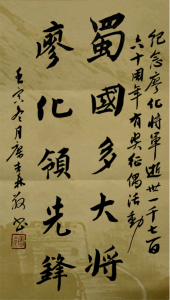 纪念廖化将军逝世一千七百
六十周年有奖征偶活动
蜀國多大将
廖化領先鋒
壬寅冬月唐